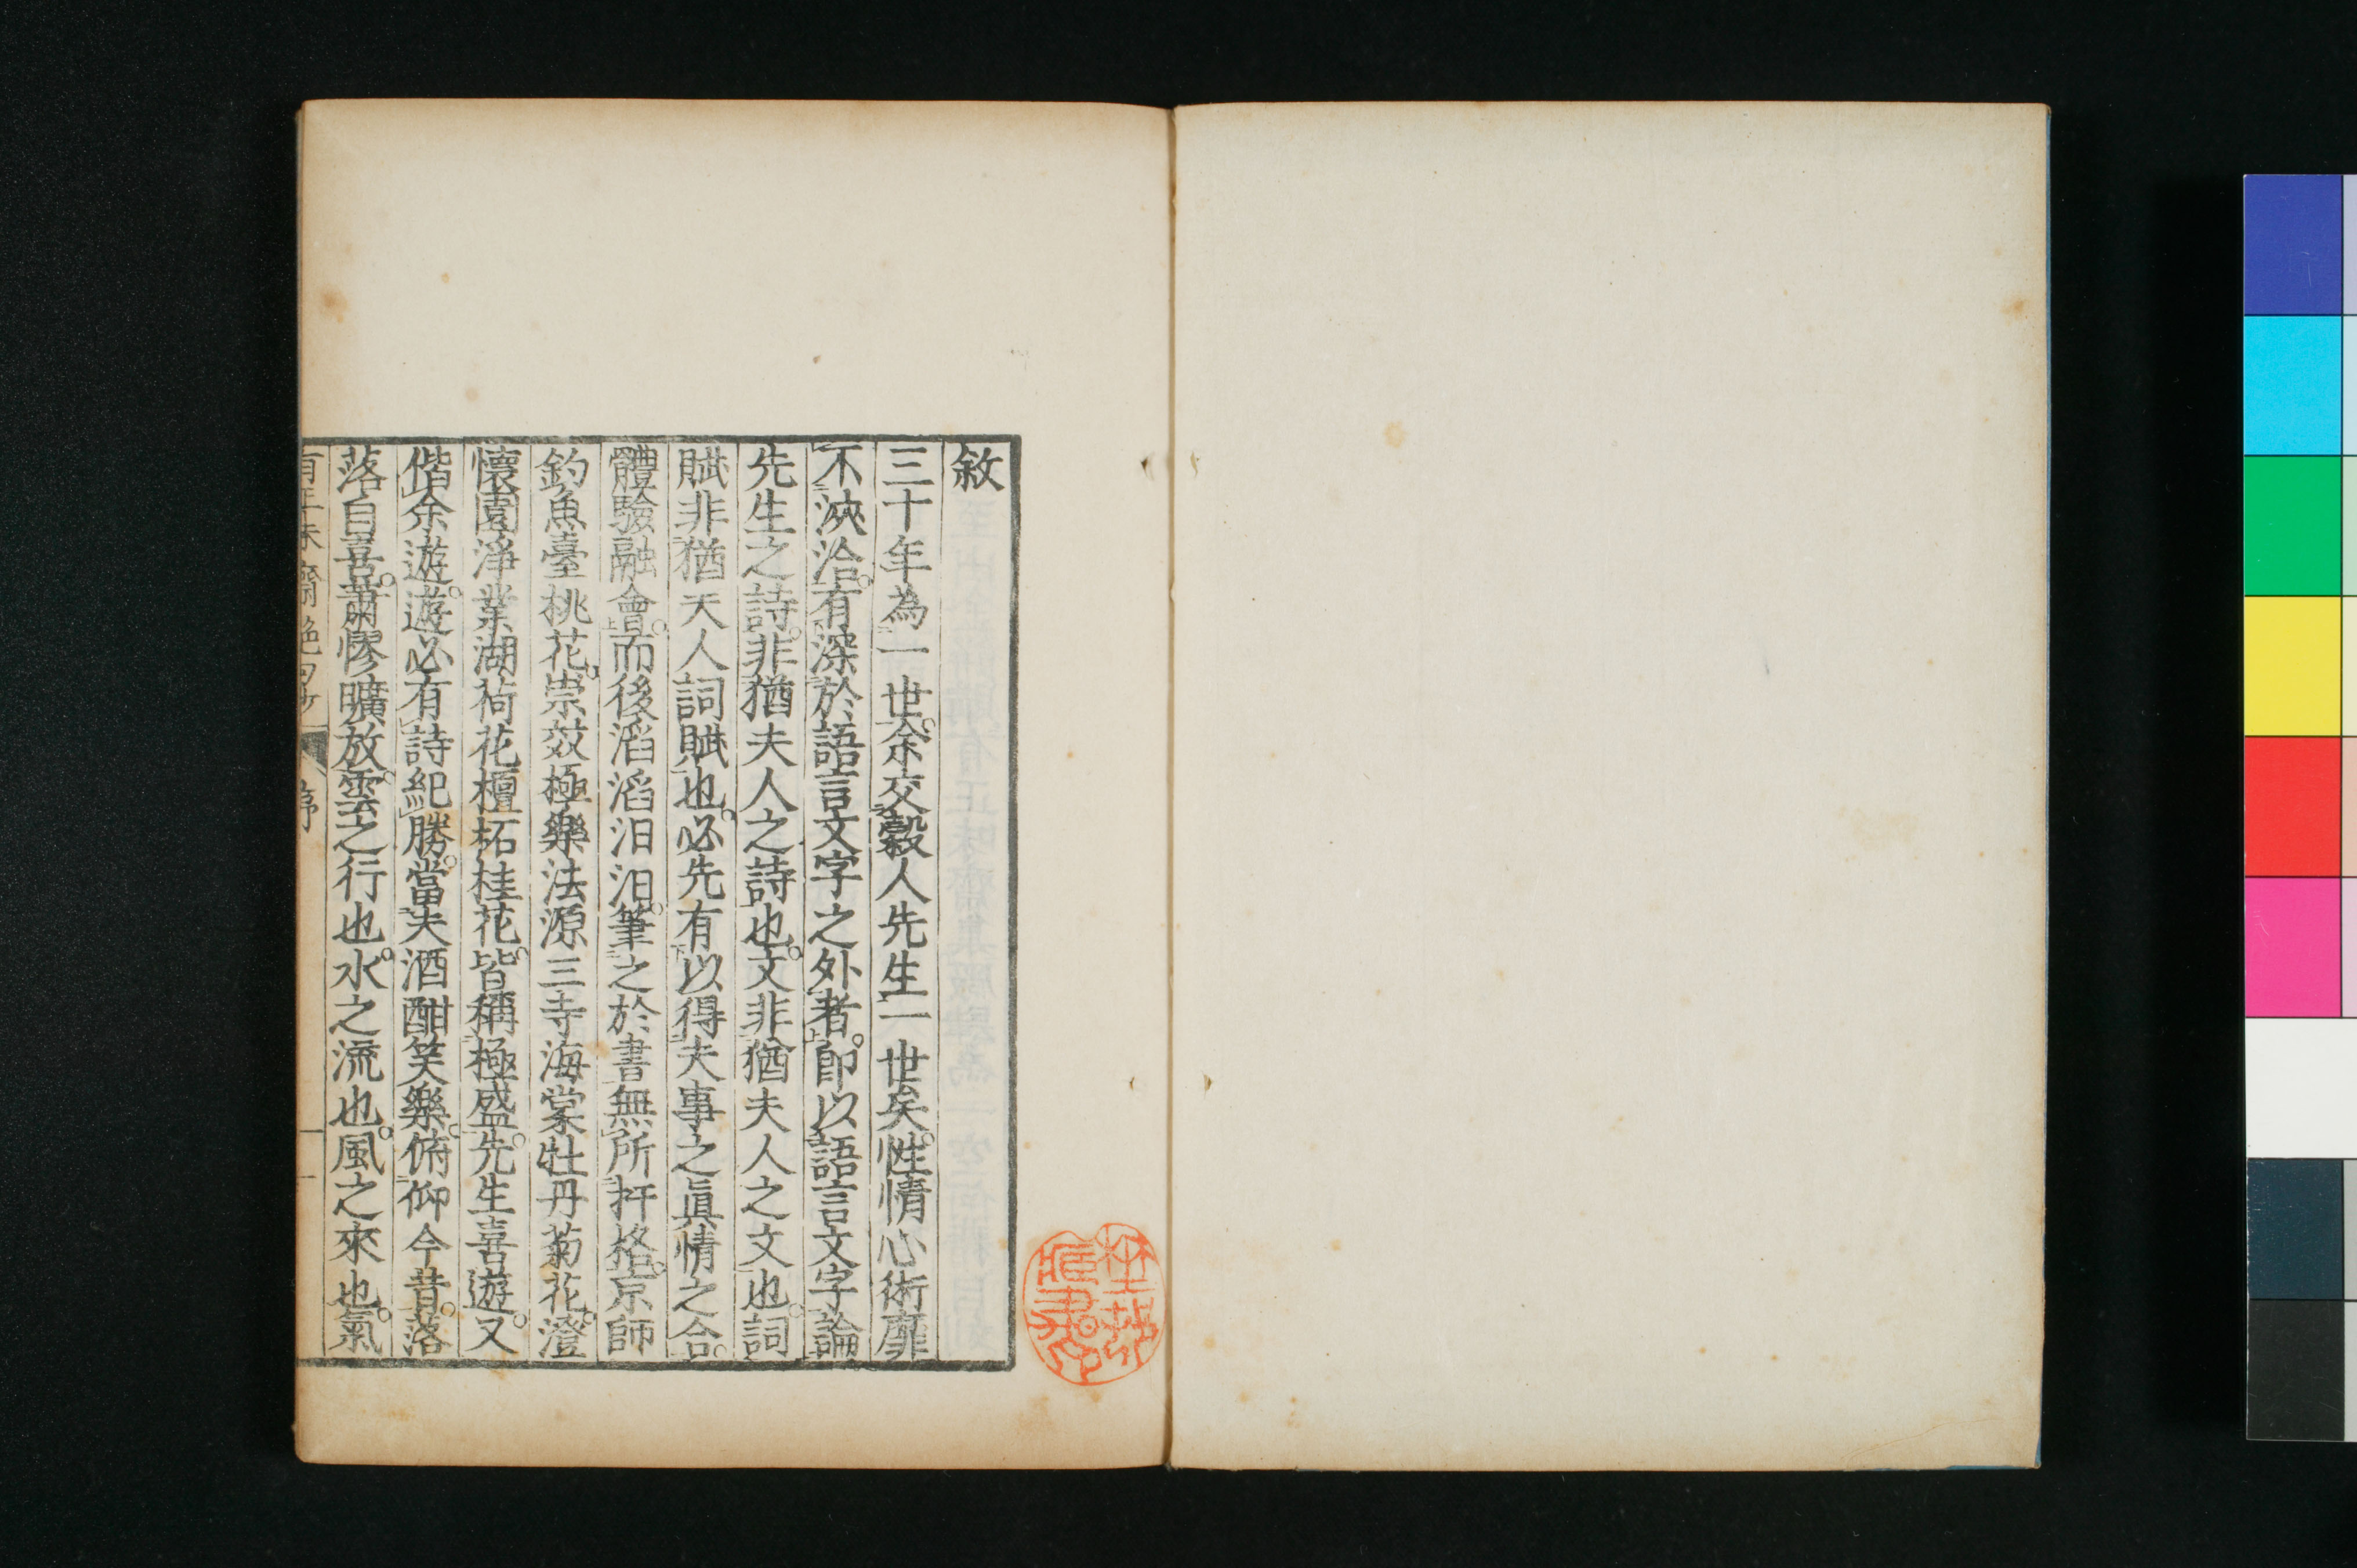 敘
三十年為一世。余交穀人先生一世矣。性情心術靡
不浹洽。有深於語言文字之外者。卽以語言文字論
先生之詩。非猶夫人之詩也。文非猶夫人之文也。詞
賦非猶夫人詞賦也。必先有以得夫事之眞情之合。
體驗融會。而後滔滔汨汨。筆之於書無所扞格。京師
釣魚臺桃花。崇效極樂法源三寺海棠牡丹菊花。澄
懷園淨業湖荷花檀柘桂花。皆稱極盛。先生喜遊。又
偕余遊。遊必有詩紀勝。當夫酒酣笑樂。俯仰今昔。落
落自喜。蕭憀曠放。雲之行也。水之流也。風之來也。氣
有正味齋
序
一